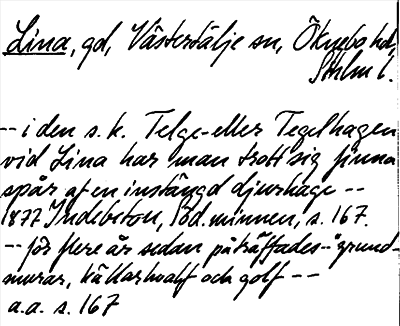 Lina, gd, Västertälje sn, Öknebo hd,
Sthlm l.
-- i den s. k. Telge- eller Tegelhagen
vid Lina har man trott sig finna
spår af en instängd djurhage --
1877 Indebetou, Söd. minnen, s. 167.
-- för flere år sedan påträffades -- "grund-
murar, källarhvalf och golf --
a.a. s. 167